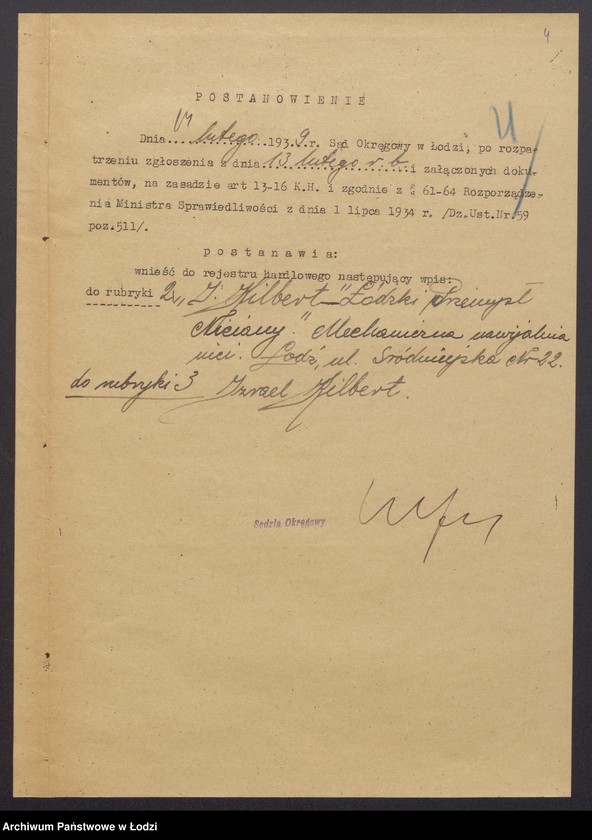 4
POSTANOWIENIE
Dnia lutego 1939 r. Sąd Okręgowy w Łodzi, po rozpa-
trzeniu zgłoszenia z dnia 13 lutego r. b. i załączonych doku-
mentów, na zasadzie art 13-16 K.H. i zgodnie z § 61-64 Rozporządze-
nia Ministra Sprawiedliwości z dnia 1 lipca 1934 r. /Dz.Ust.Nr.59
poz.511/.
postanawia:
wnieść do rejestru handlowego następujący wpis:
do rubryki 2: „I. Hilbert - Łódzki Przemysł
Niciany." Mechaniczna nawijalnia
nici. Łódź, ul. Śródmiejska Nr 22.
do rubryki 3 Izrael Hilbert.
Sędzia Okręgowy
Archiwum Państwowe w Łodzi